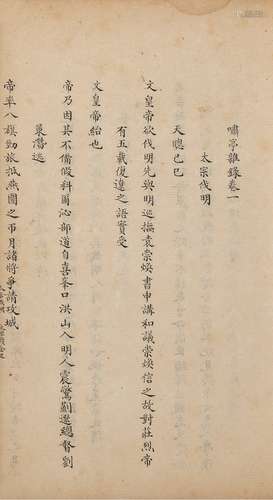 嘯亭雜錄卷一
太宗伐明
天聰己巳
文皇帝欲伐明先與明巡撫袁崇煥書申講和議崇煥信之故對莊烈帝
有五載復遼之語實受
文皇帝紿也
帝乃因其不備假科爾沁部道自喜峯口洪山入明人震驚薊遼總督劉
策潛遁
帝率八旗勁旅抵燕圍之匝月諸將爭請攻城